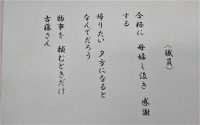 〈職員〉
合格に 母嬉し泣き 感謝
する
帰りたい 夕方になると
なんでだろう
物事を 頼むときだけ
古藤さん